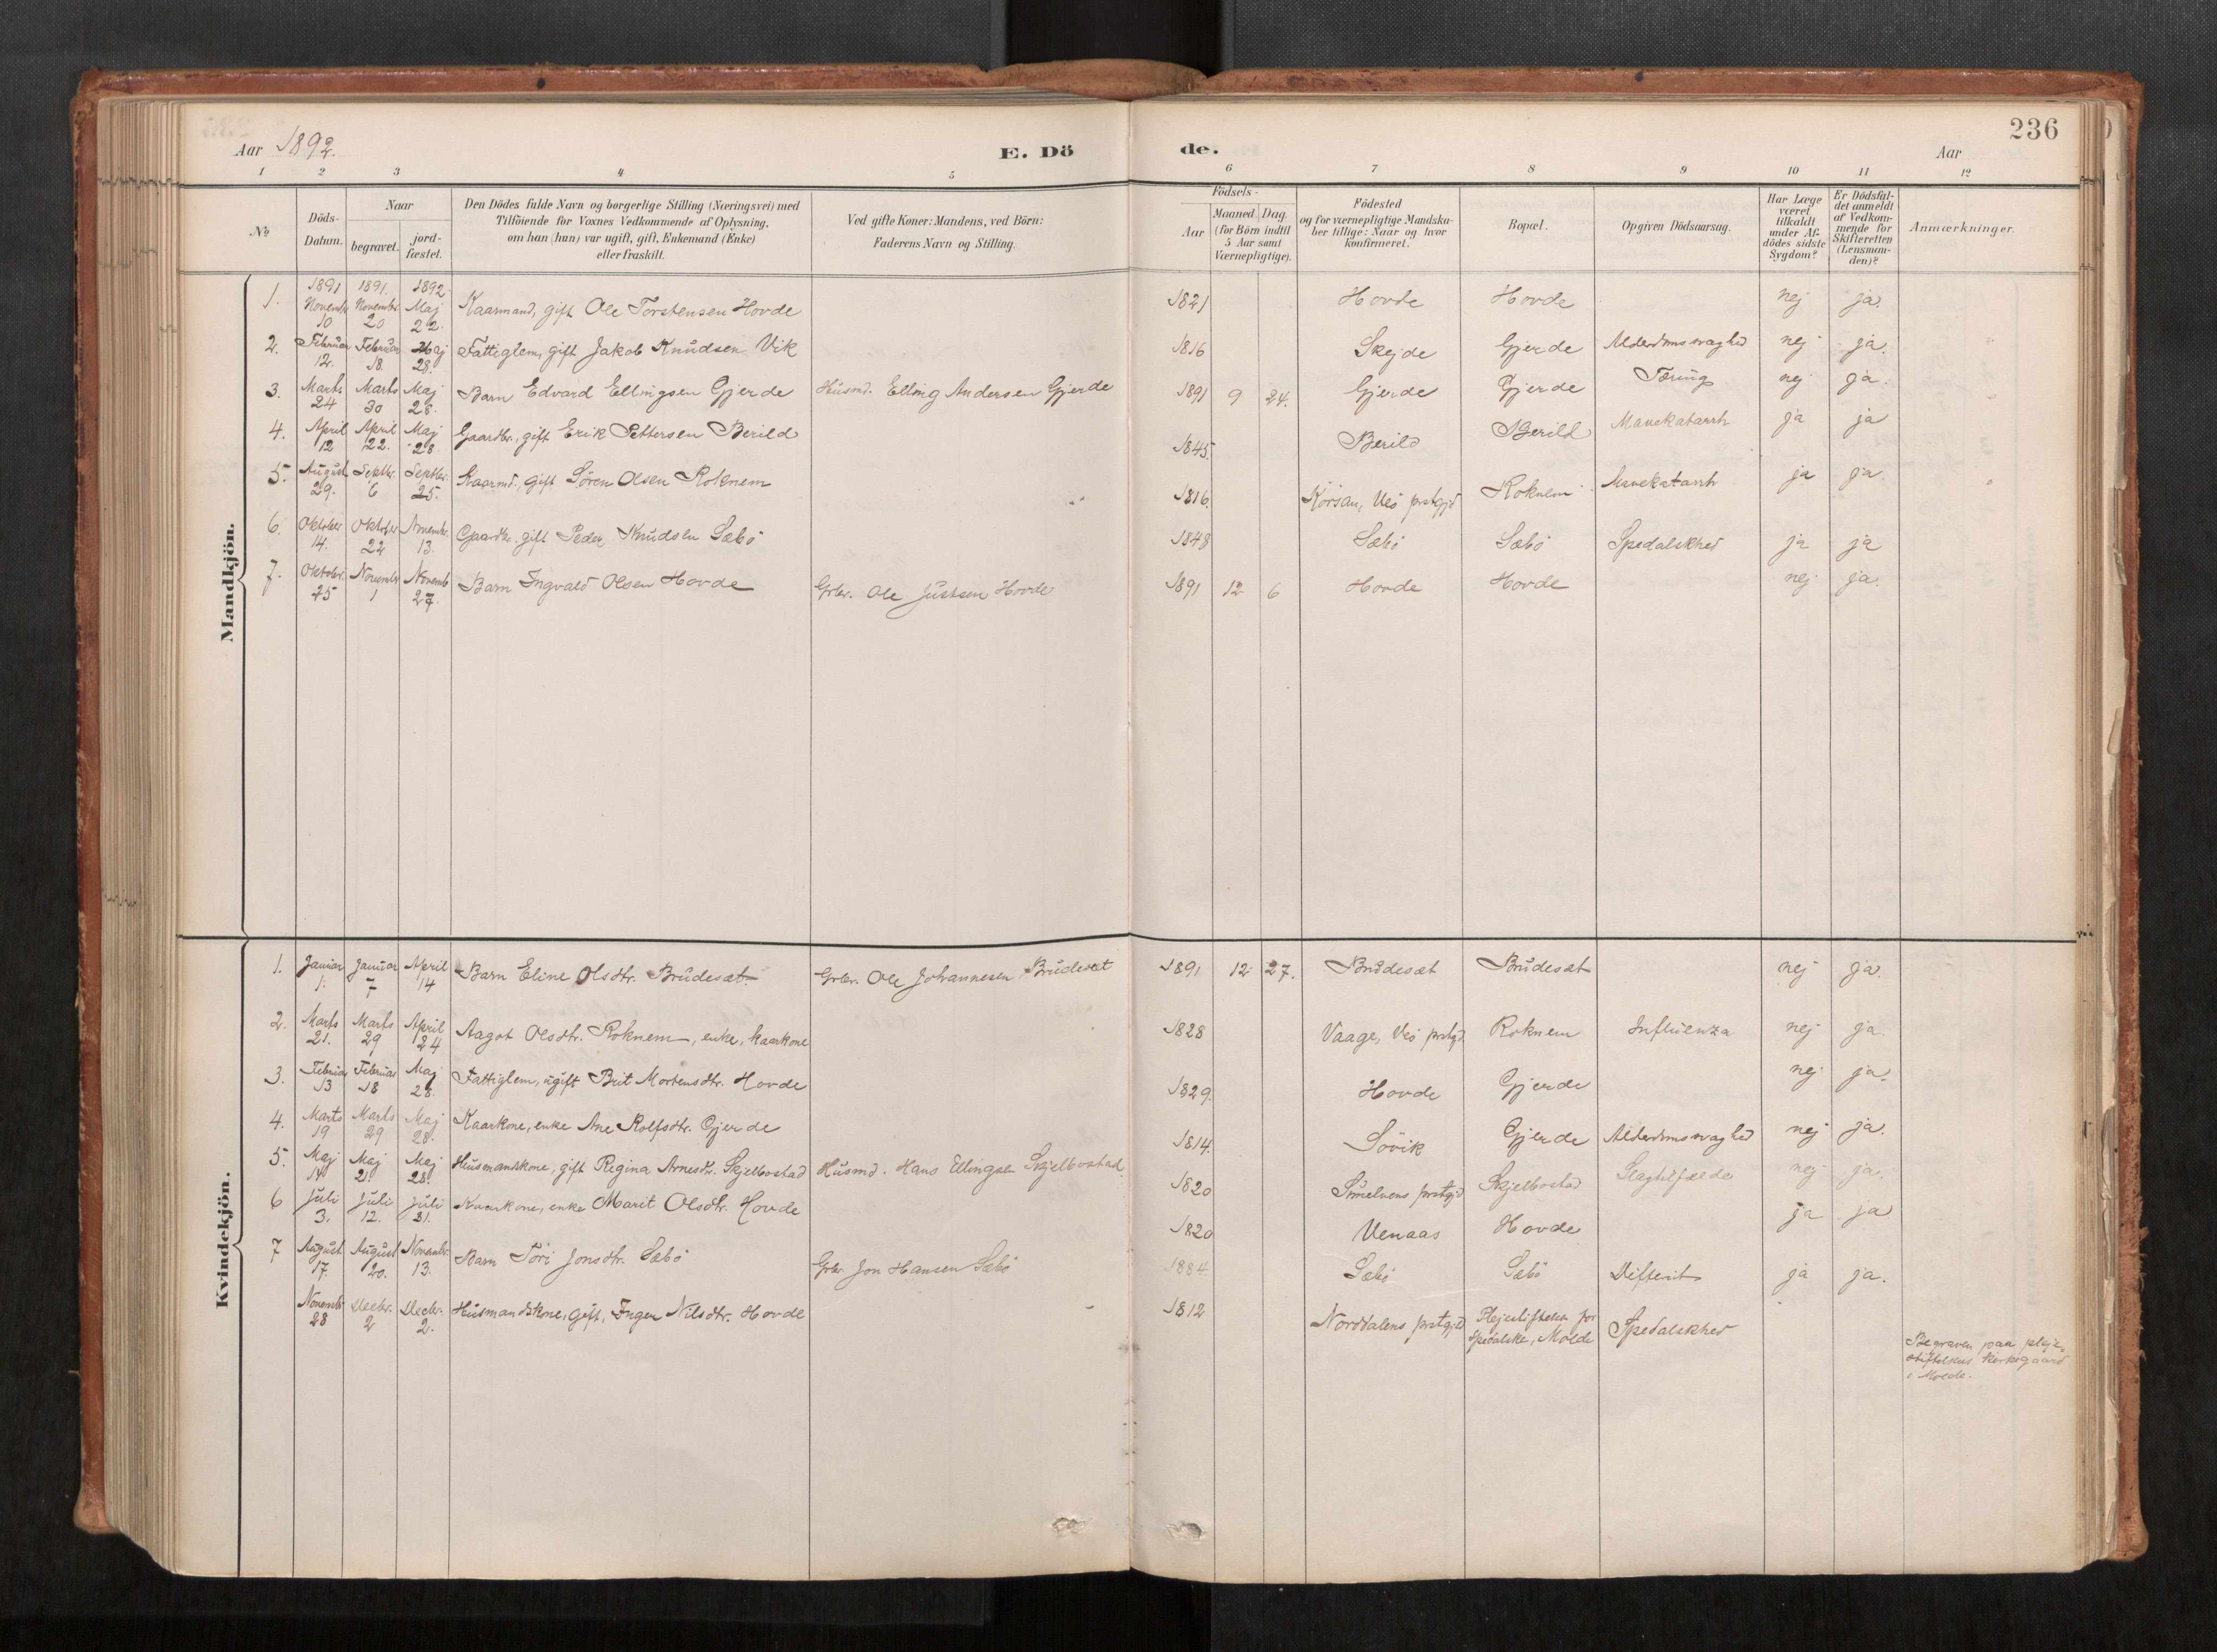 236
Aar 1892.
E. Dö
de.
Aar
1 2 3 4 5 6 7 8 9 10 11 12
No
Döds-Datum.
Naar
begravet.
jord-fæstet.
Den Dödes fulde Navn og borgerlige Stilling (Næringsvei) med
Tilföiende for Voxnes Vedkommende af Oplysning,
om han (hun) var ugift, gift, Enkemand (Enke)
eller fraskilt.
Ved gifte Koner: Mandens, ved Börn:
Faderens Navn og Stilling.
Födsels-
Aar
Maaned. Dag.
(for Börn indtil
5 Aar samt
Værnepligtige).
Födested
og for værnepligtige Mandska-
ber tillige: Naar og hvor
konfirmeret.
Bopæl.
Opgiven Dödsaarsag.
Har Læge
været
tilkaldt
under Af-
dödes sidste
Sygdom?
Er Dödsfal-
det anmeldt
af Vedkom-
mende for
Skifteretten
(Lensman-
den)?
Anmærkninger.
Mandkjön.
1. 1891 Novembr 10 1891. Novembr. 20 1892 Maj 22. Kaarmand, gift Ole Torstensen Hovde 1821 Hovde Hovde nej ja.
2. Februar 12. Februar 18. Maj 28. Fattiglem, gift Jakob Knudsen Vik 1816 Skejde Gjerde Alderdomssvaghed nej ja.
3. Marts 24 Marts 30 Maj 28. Barn Edvard Ellingsen Gjerde Husmd. Elling Andersen Gjerde 1891 9 24. Gjerde Gjerde Tæring nej ja.
4. April 12 April 22. Maj 28. Gaardbr., gift Erik Pettersen Berild 1845. Berild Berild Mavekatarrh ja ja
5. August 29. Septbr. 6 Septbr. 25. Kaarmd., gift Sören Olsen Roknem 1816. Korsan, Veö prstgjd Roknem Mavekatarrh ja ja.
6. Oktober 14. Oktober 22 Novembr. 13. Gaardbr. gift Peder Knudsen Sæbö 1848 Sæbö Sæbö Spedalskhed ja ja
7. Oktobr. 25 Novembr 1 Novemb 27. Barn Ingvald Olsen Hovde Grbr. Ole Justsen Hovde 1891 12 6 Hovde Hovde nej ja.
Kvindekjön.
1. Januar 1. Januar 7 April 14 Barn Eline Olsdtr. Brudesæt. Grbr. Ole Johannesen Brudesæt 1891 12 27. Brudesæt Brudesæt nej ja.
2. Marts 21. Marts 29 April 24 Aagot Olsdtr. Roknem, enke, kaarkone 1828 Vaage, Veö prstgjd. Roknem Influenza nej ja.
3. Februar 13 Februar 18 Maj 28. Fattiglem, ugift Brit Mortensdtr. Hovde 1829. Hovde Gjerde nej ja.
4. Marts 19 Marts 29 Maj 28. Kaarkone, enke Ane Rolfsdtr. Gjerde 1814. Sövik Gjerde Alderdomssvaghed nej ja.
5. Maj 14 Maj 21. Maj 28. Husmandskone, gift Regina Arnesdtr. Skjelbostad Husmd. Hans Ellingsen Skjelbostad 1820 Sunelvens prstgjd Skjelbostad Slagtilfælde nej ja.
6 Juli 3. Juli 12. Juli 31. Kaarkone, enke Marit Olsdtr. Hovde 1820 Venaas Hovde ja ja
7 August 17. August 20. Novembr. 13. Barn Töri Jonsdtr. Sæbö Grbr. Jon Hansen Sæbö 1884. Sæbö Sæbö Difterit ja ja.
Novembr 28 Decbr. 2 Decbr. 2. Husmandskone, gift, Inger Nilsdtr. Hovde 1812 Norddalens prstgjd Plejestiftelsen for Spedalske, Molde Spedalskhed
Begraven paa pleje-
stiftelsens kirkegaard
i Molde.